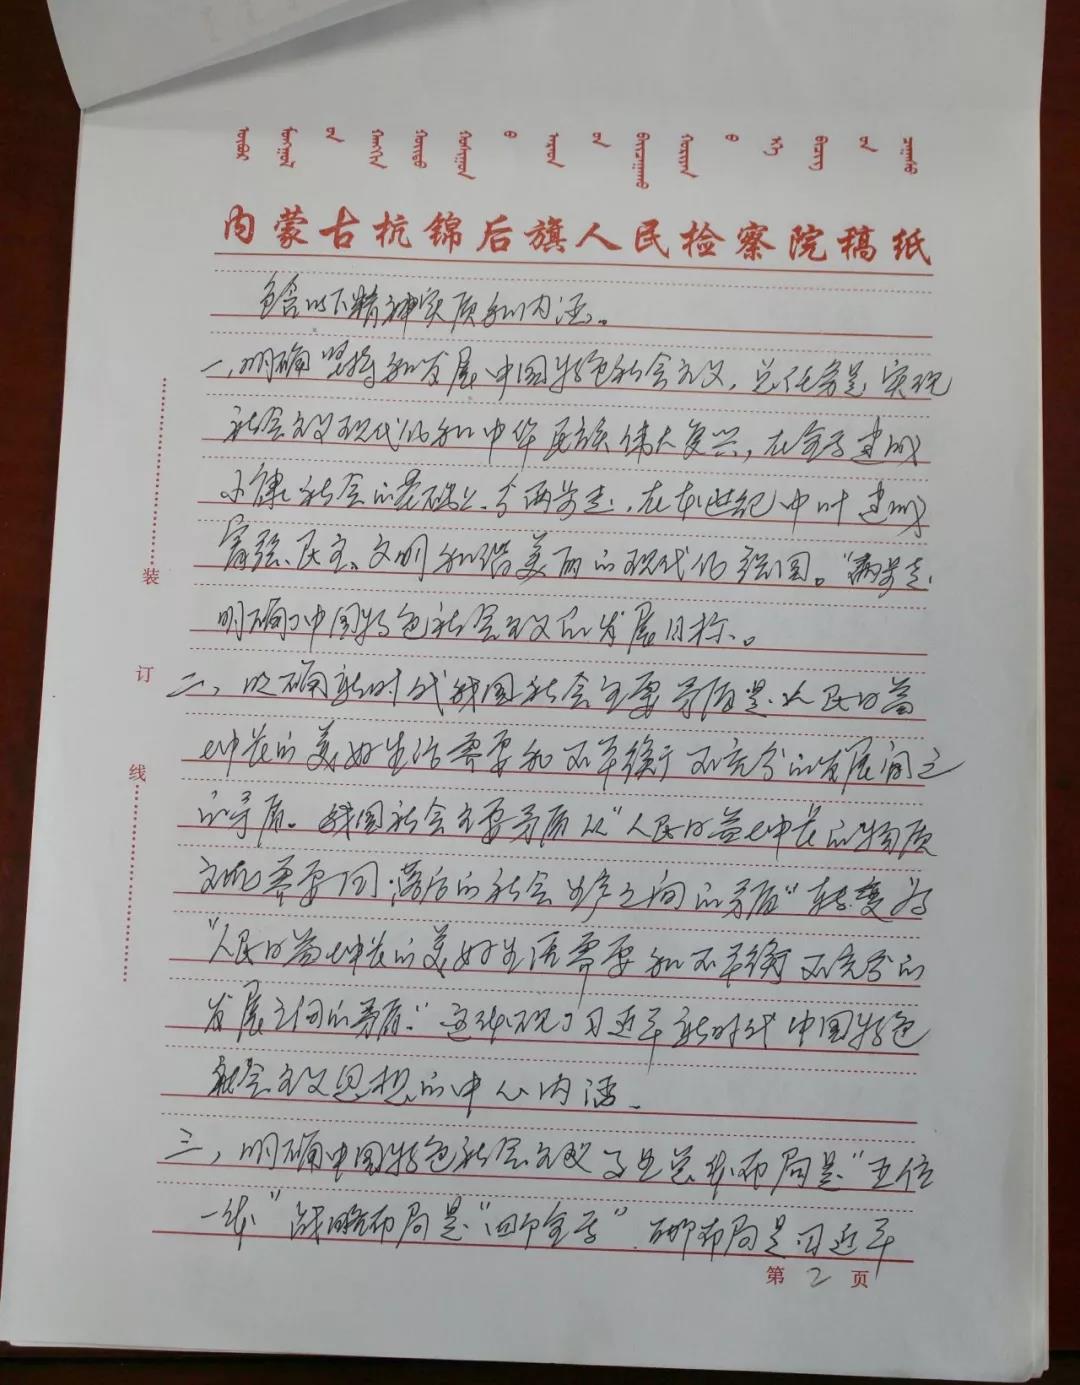 内蒙古杭锦后旗人民检察院稿纸
包含以下精神实质和内涵。
一,明确坚持和发展中国特色社会主义,总任务是实现
社会主义现代化和中华民族伟大复兴,在全面建成
小康社会的基础上、分两步走,在本世纪中叶建成
富强、民主、文明和谐美丽的现代化强国。“两步走
明确了中国特色社会主义的发展目标。
二、明确新时代我国社会主要矛盾是人民日益
增长的美好生活需要和不平衡不充分的发展间之
的矛盾。我国社会主要矛盾从“人民日益增长的物质
文化需要同落后的社会生产之间的矛盾”转变为
“人民日益增长的美好生活需要和不平衡不充分的
发展之间的矛盾。”这体现了习近平新时代中国特色
社会主义思想的中心内涵。
三,明确中国特色社会主义事业总体布局是“五位
一体”战略布局是“四个全面”。布局是习近平
装
订
线
第2页